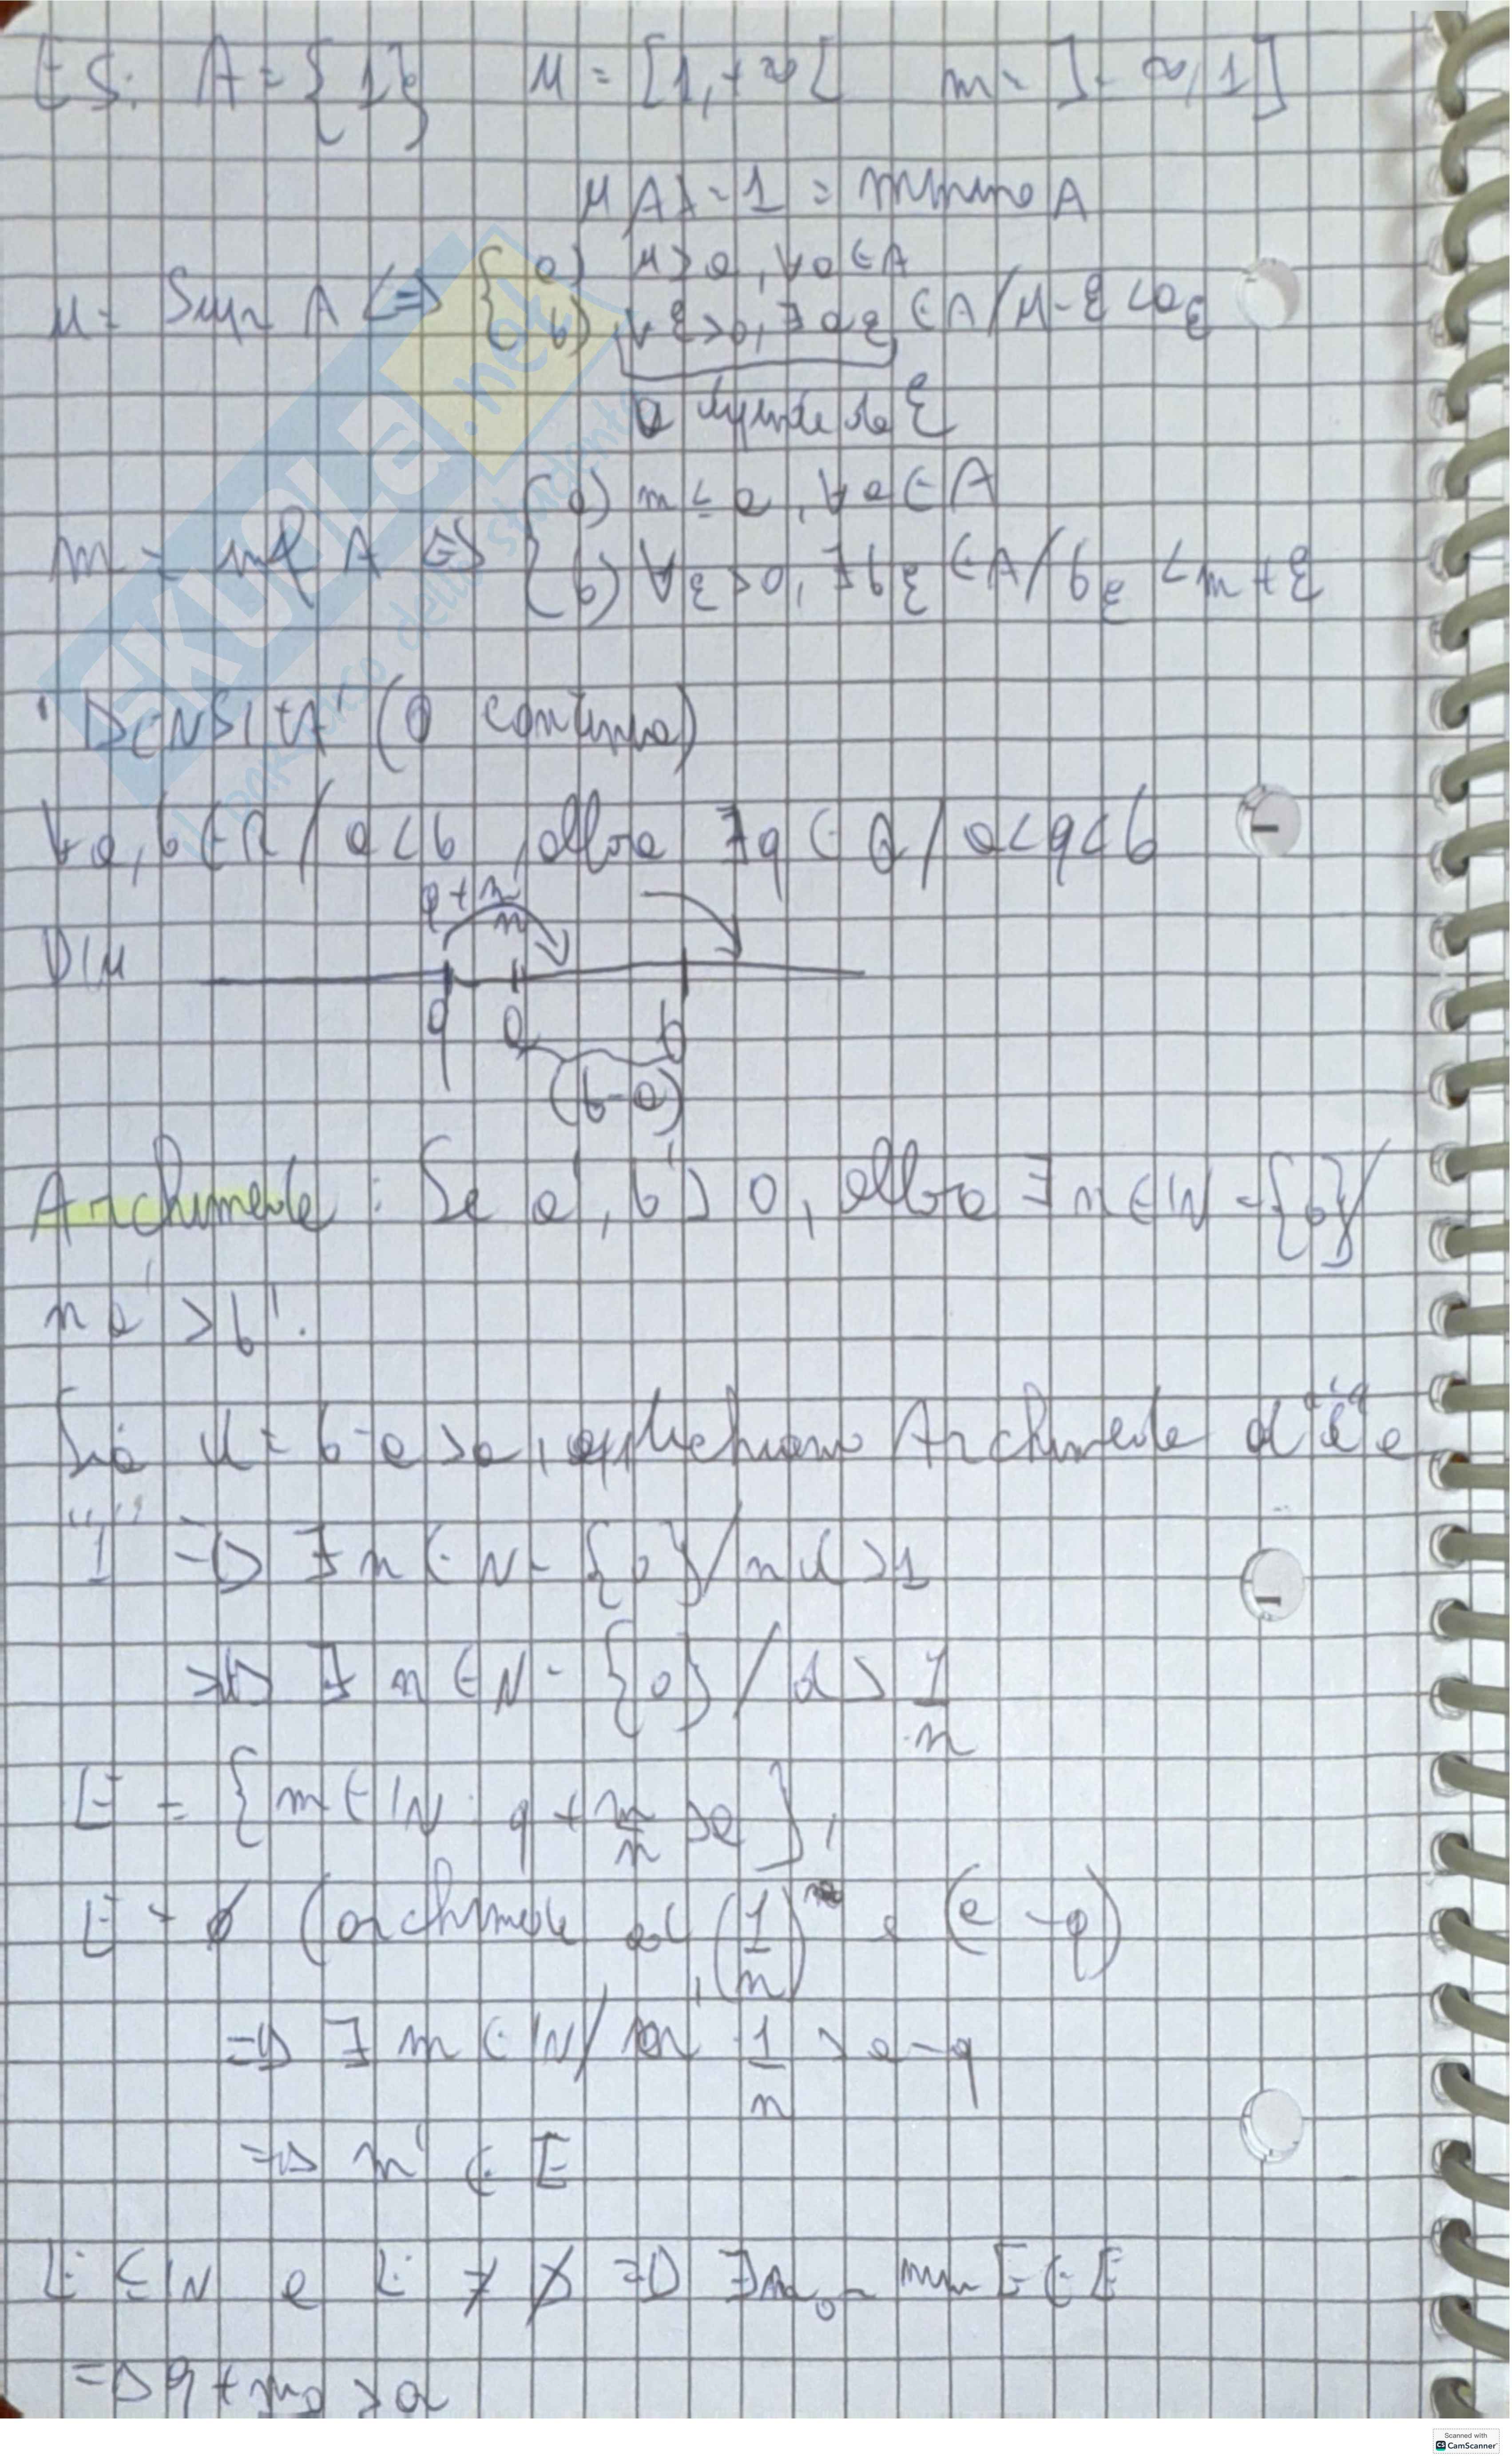 ES: A = {1} M = [1, +∞[ m = ]-∞, 1]
M(A) = 1 = minimo A
M = Sup A <=> { a) M ≥ a, ∀a ∈ A
b) ∀ε>0, ∃ aε ∈ A / M - ε < aε
a dipende da ε
m = inf A <=> { a) m ≤ a, ∀a ∈ A
b) ∀ε>0, ∃bε ∈ A / bε < m + ε
• DENSITA' (Q continua)
∀a, b ∈ R / a < b, allora ∃q ∈ Q / a < q < b
q + m/n
DIM
q a b
(b-a)
Archimede: Se a', b' > 0, allora ∃ n ∈ IN - {0} /
n a' > b'.
Sia d = b-a > 0, applichiamo Archimede a "d" e
"1" => ∃ n ∈ N - {0} / n d > 1
=> ∃ n ∈ N - {0} / d > 1/n
E = {m ∈ IN : q + m/n > a},
E ≠ ∅ (archimede ad (1/n) e (a - q)
=> ∃ m ∈ IN / m 1/n > a - q
=> m' ∈ E
E ⊆ IN e E ≠ ∅ => ∃ m0 = min E ∈ E
=> q + m0 > a
SKUOLA.net
il paradiso dello studente
Scanned with
CS CamScanner